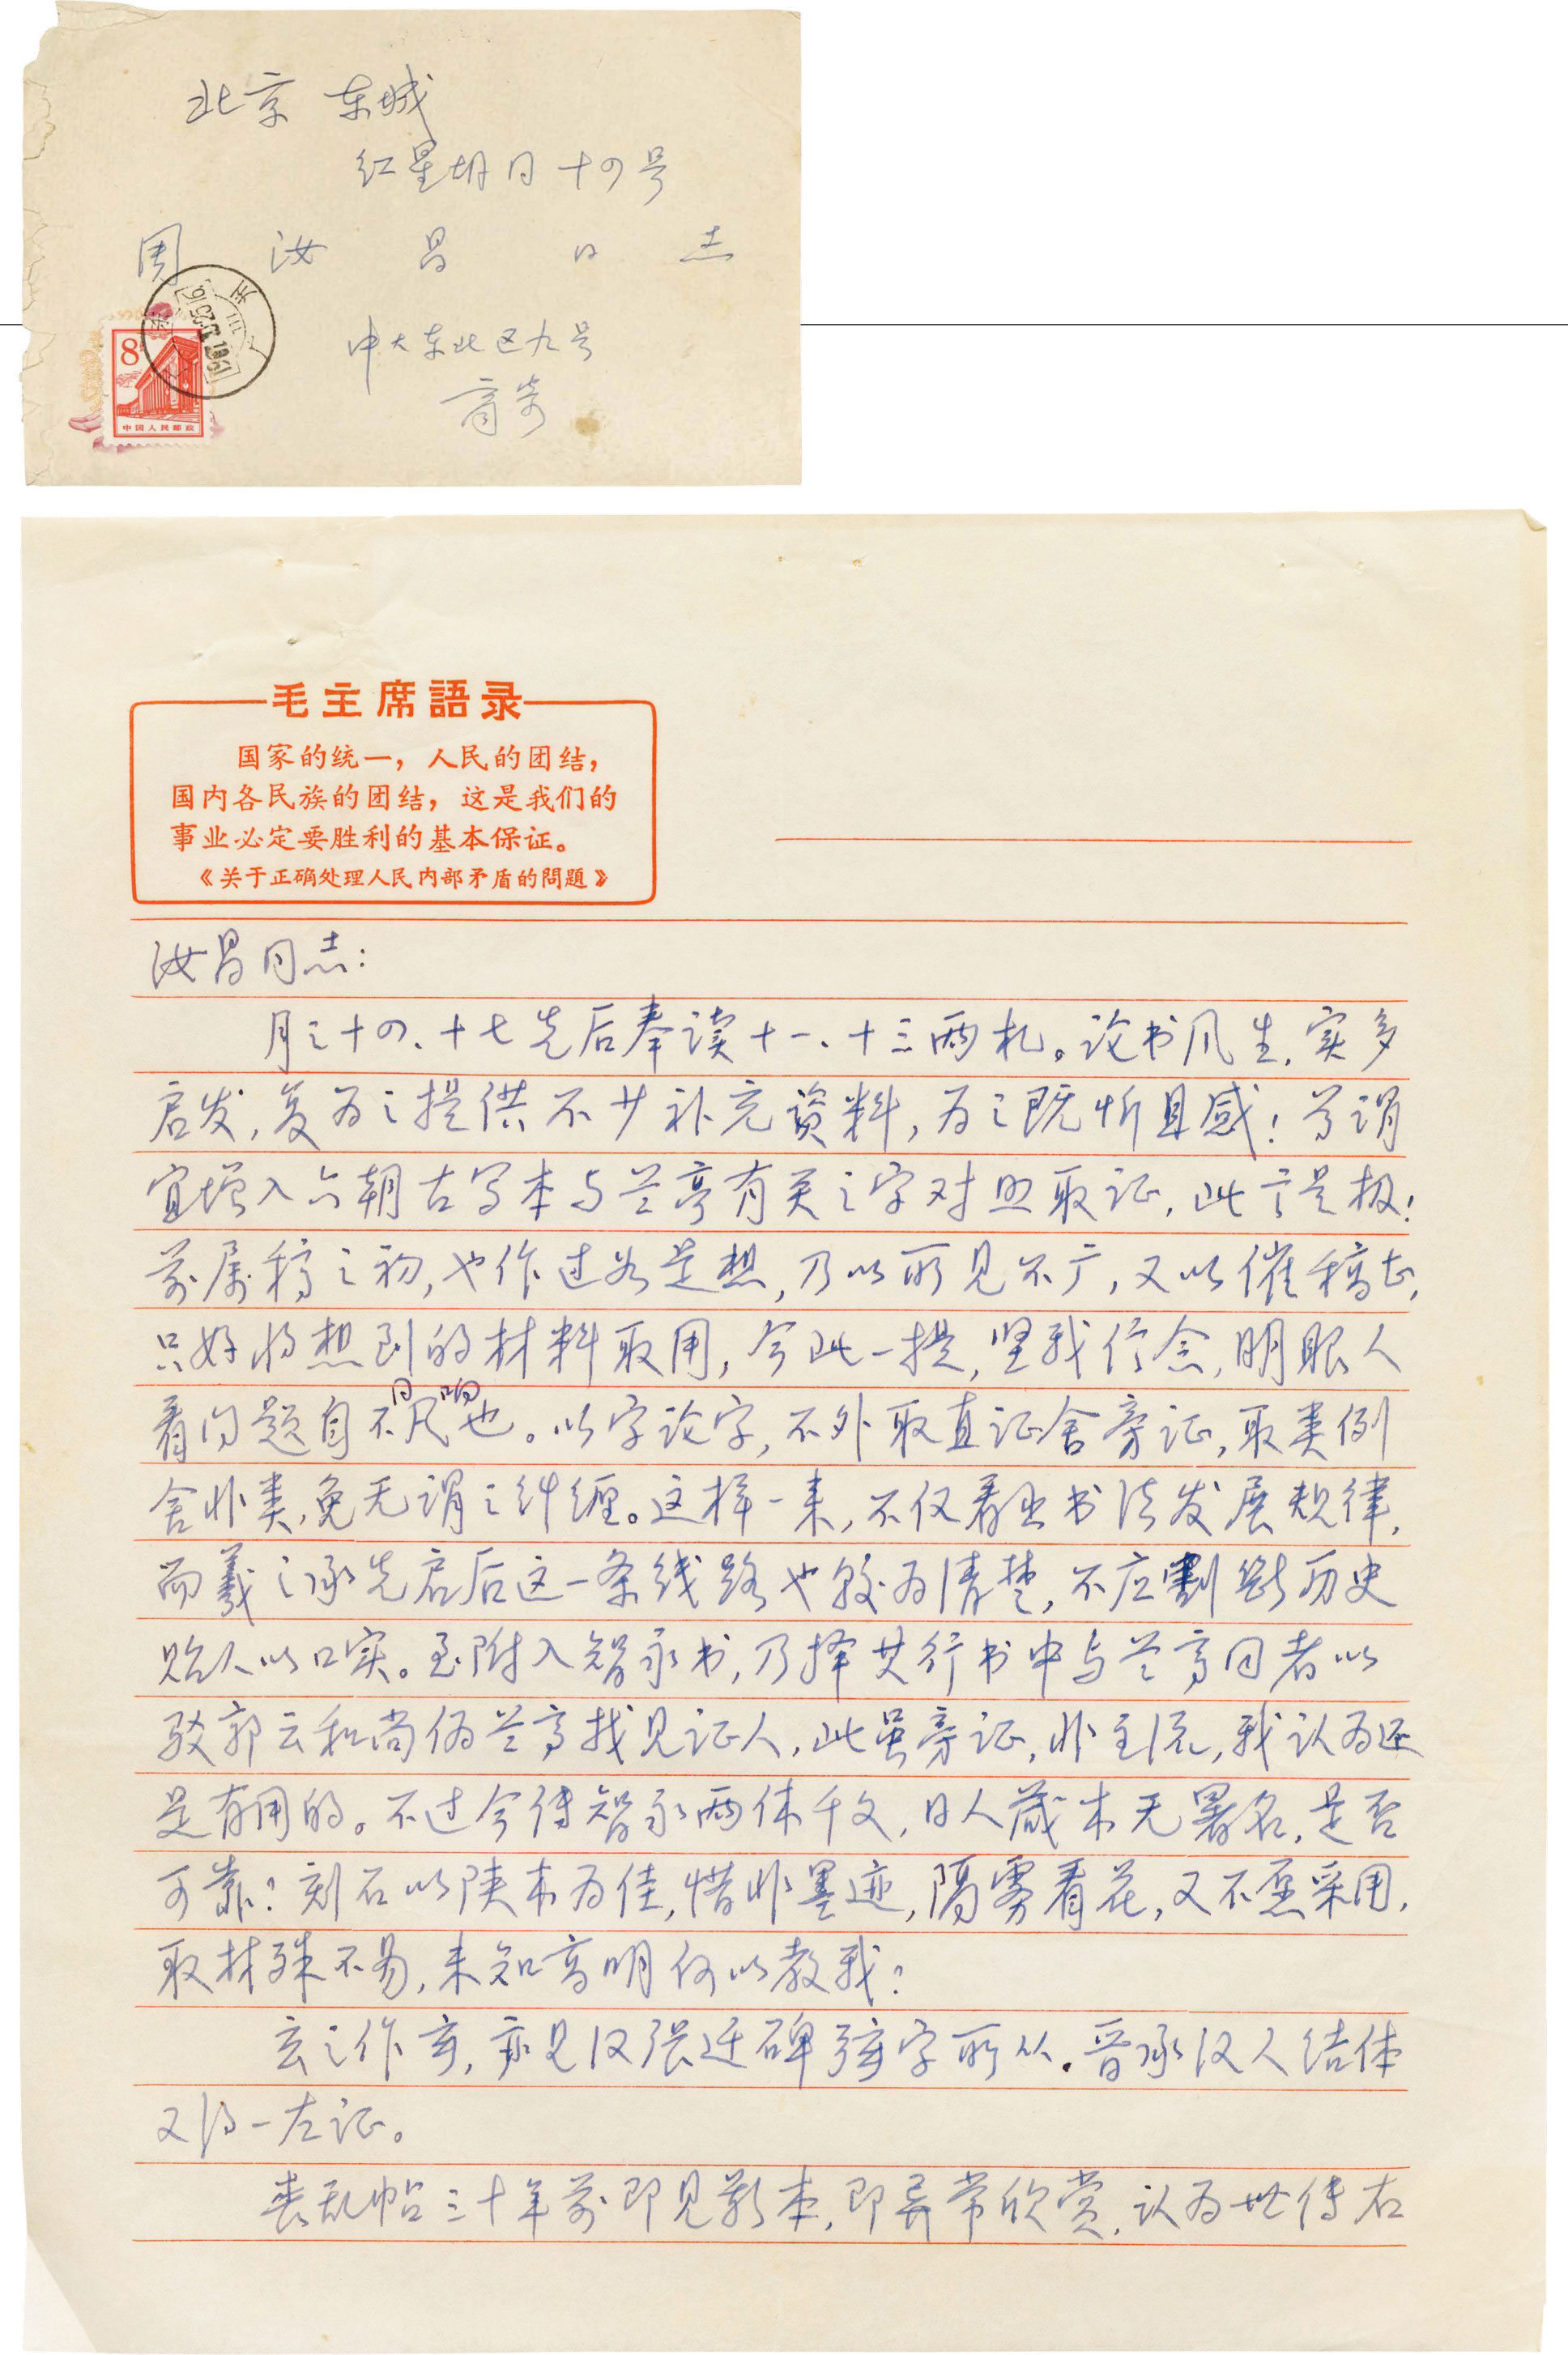 北京 东城
红星胡同 十四号
周 汝 昌 同 志
中大东北区九号
商寄
8
中国人民邮政
毛主席語录
国家的统一，人民的团结，
国内各民族的团结，这是我们的
事业必定要胜利的基本保证。
《关于正确处理人民内部矛盾的問題》
汝昌同志：
月之十四、十七先后奉读十一、十三两札。论书风生，实多
启发，复为之提供不少补充资料，为之既忻且感！兄谓
宜增入六朝古写本与兰亭有关之字对照取证，此言是极！
前属稿之初，也作过如是想，乃以所见不广，又以催稿亟，
只好将想到的材料取用，今此一提，坚我信念，明眼人
看问题自不同凡响也。以字论字，不外取直证舍旁证，取类例
舍非类，免无谓之纠缠。这样一来，不仅看出书法发展规律，
而羲之承先启后这一条线路也较为清楚，不应割断历史
贻人以口实。至附入智永书，乃择其行书中与兰亭同者以
驳郭云和尚伪兰亭找见证人，此虽旁证，非主流，我认为还
是有用的。不过今传智永两体千文，日人藏本无署名，是否
可靠？刻石以陕本为佳，惜非墨迹，隔雾看花，又不愿采用，
取材殊不易，未知高明何以教我？
玄之作㝈，亦见汉张迁碑弦字所从。晋承汉人结体
又得一左证。
丧乱帖三十年前即见影本，即异常欣赏，认为世传右